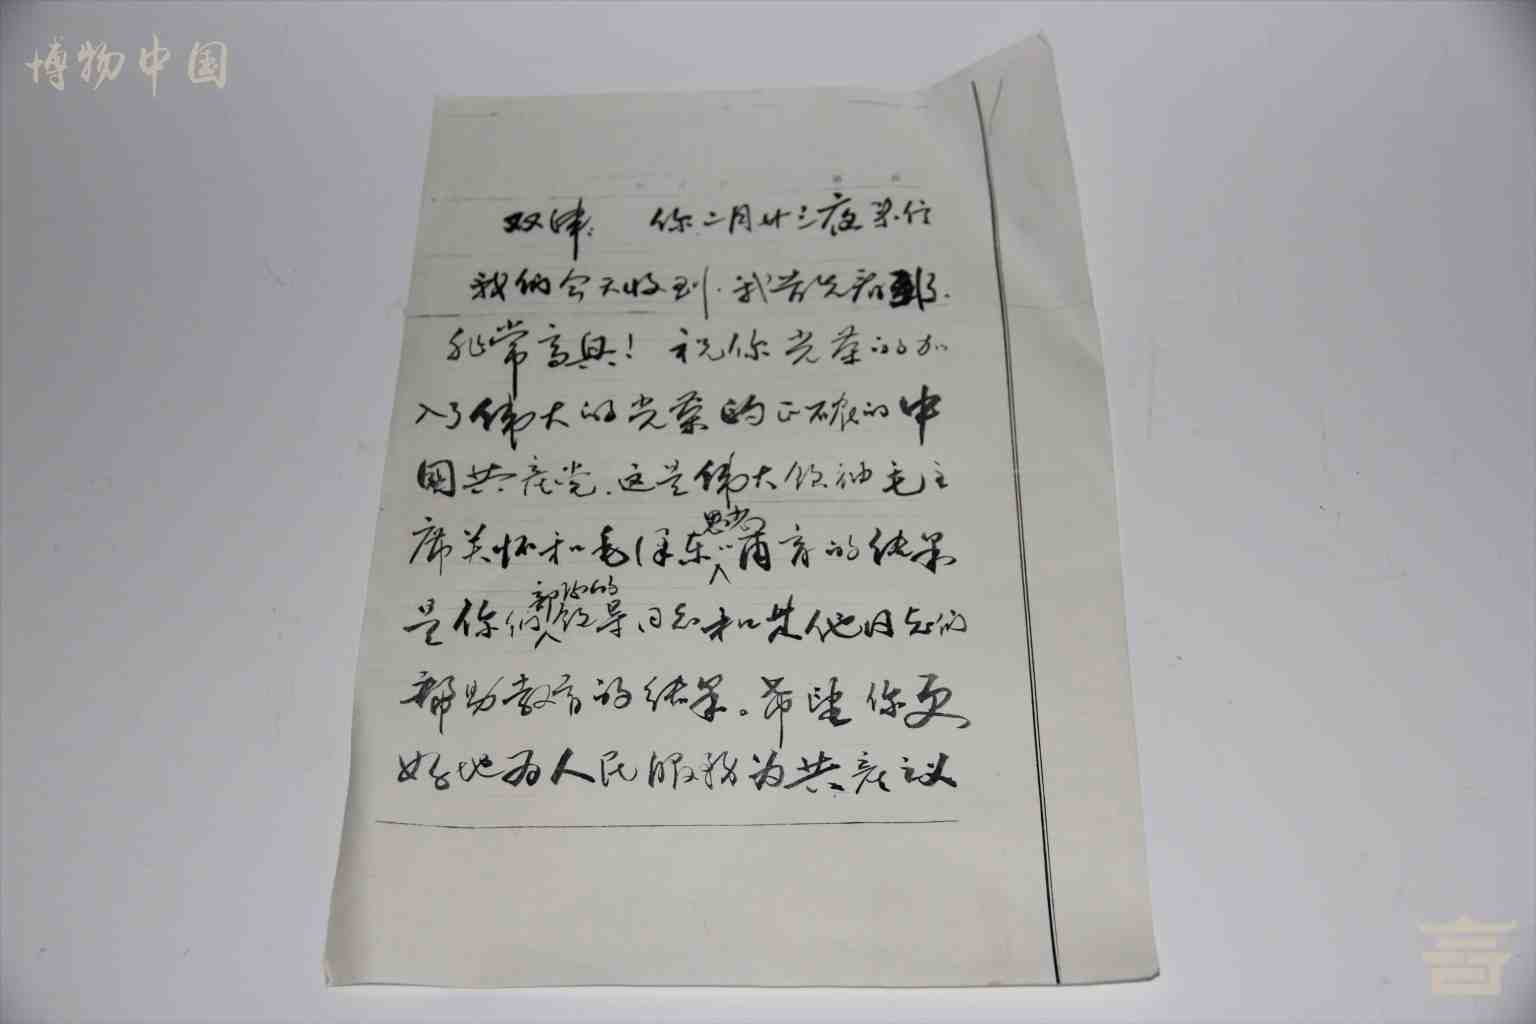 博物中国
双津： 你二月廿三夜来信
我们今天收到．我首先看到了．
非常高兴！祝你光荣的加
入了伟大的光荣的正确的中
国共产党．这是伟大领袖毛主
席关怀和毛泽东思想甫育的结果
是你们部队的领导同志和其他同志们
帮助教育的结果。希望你更
好地为人民服务为共产主义